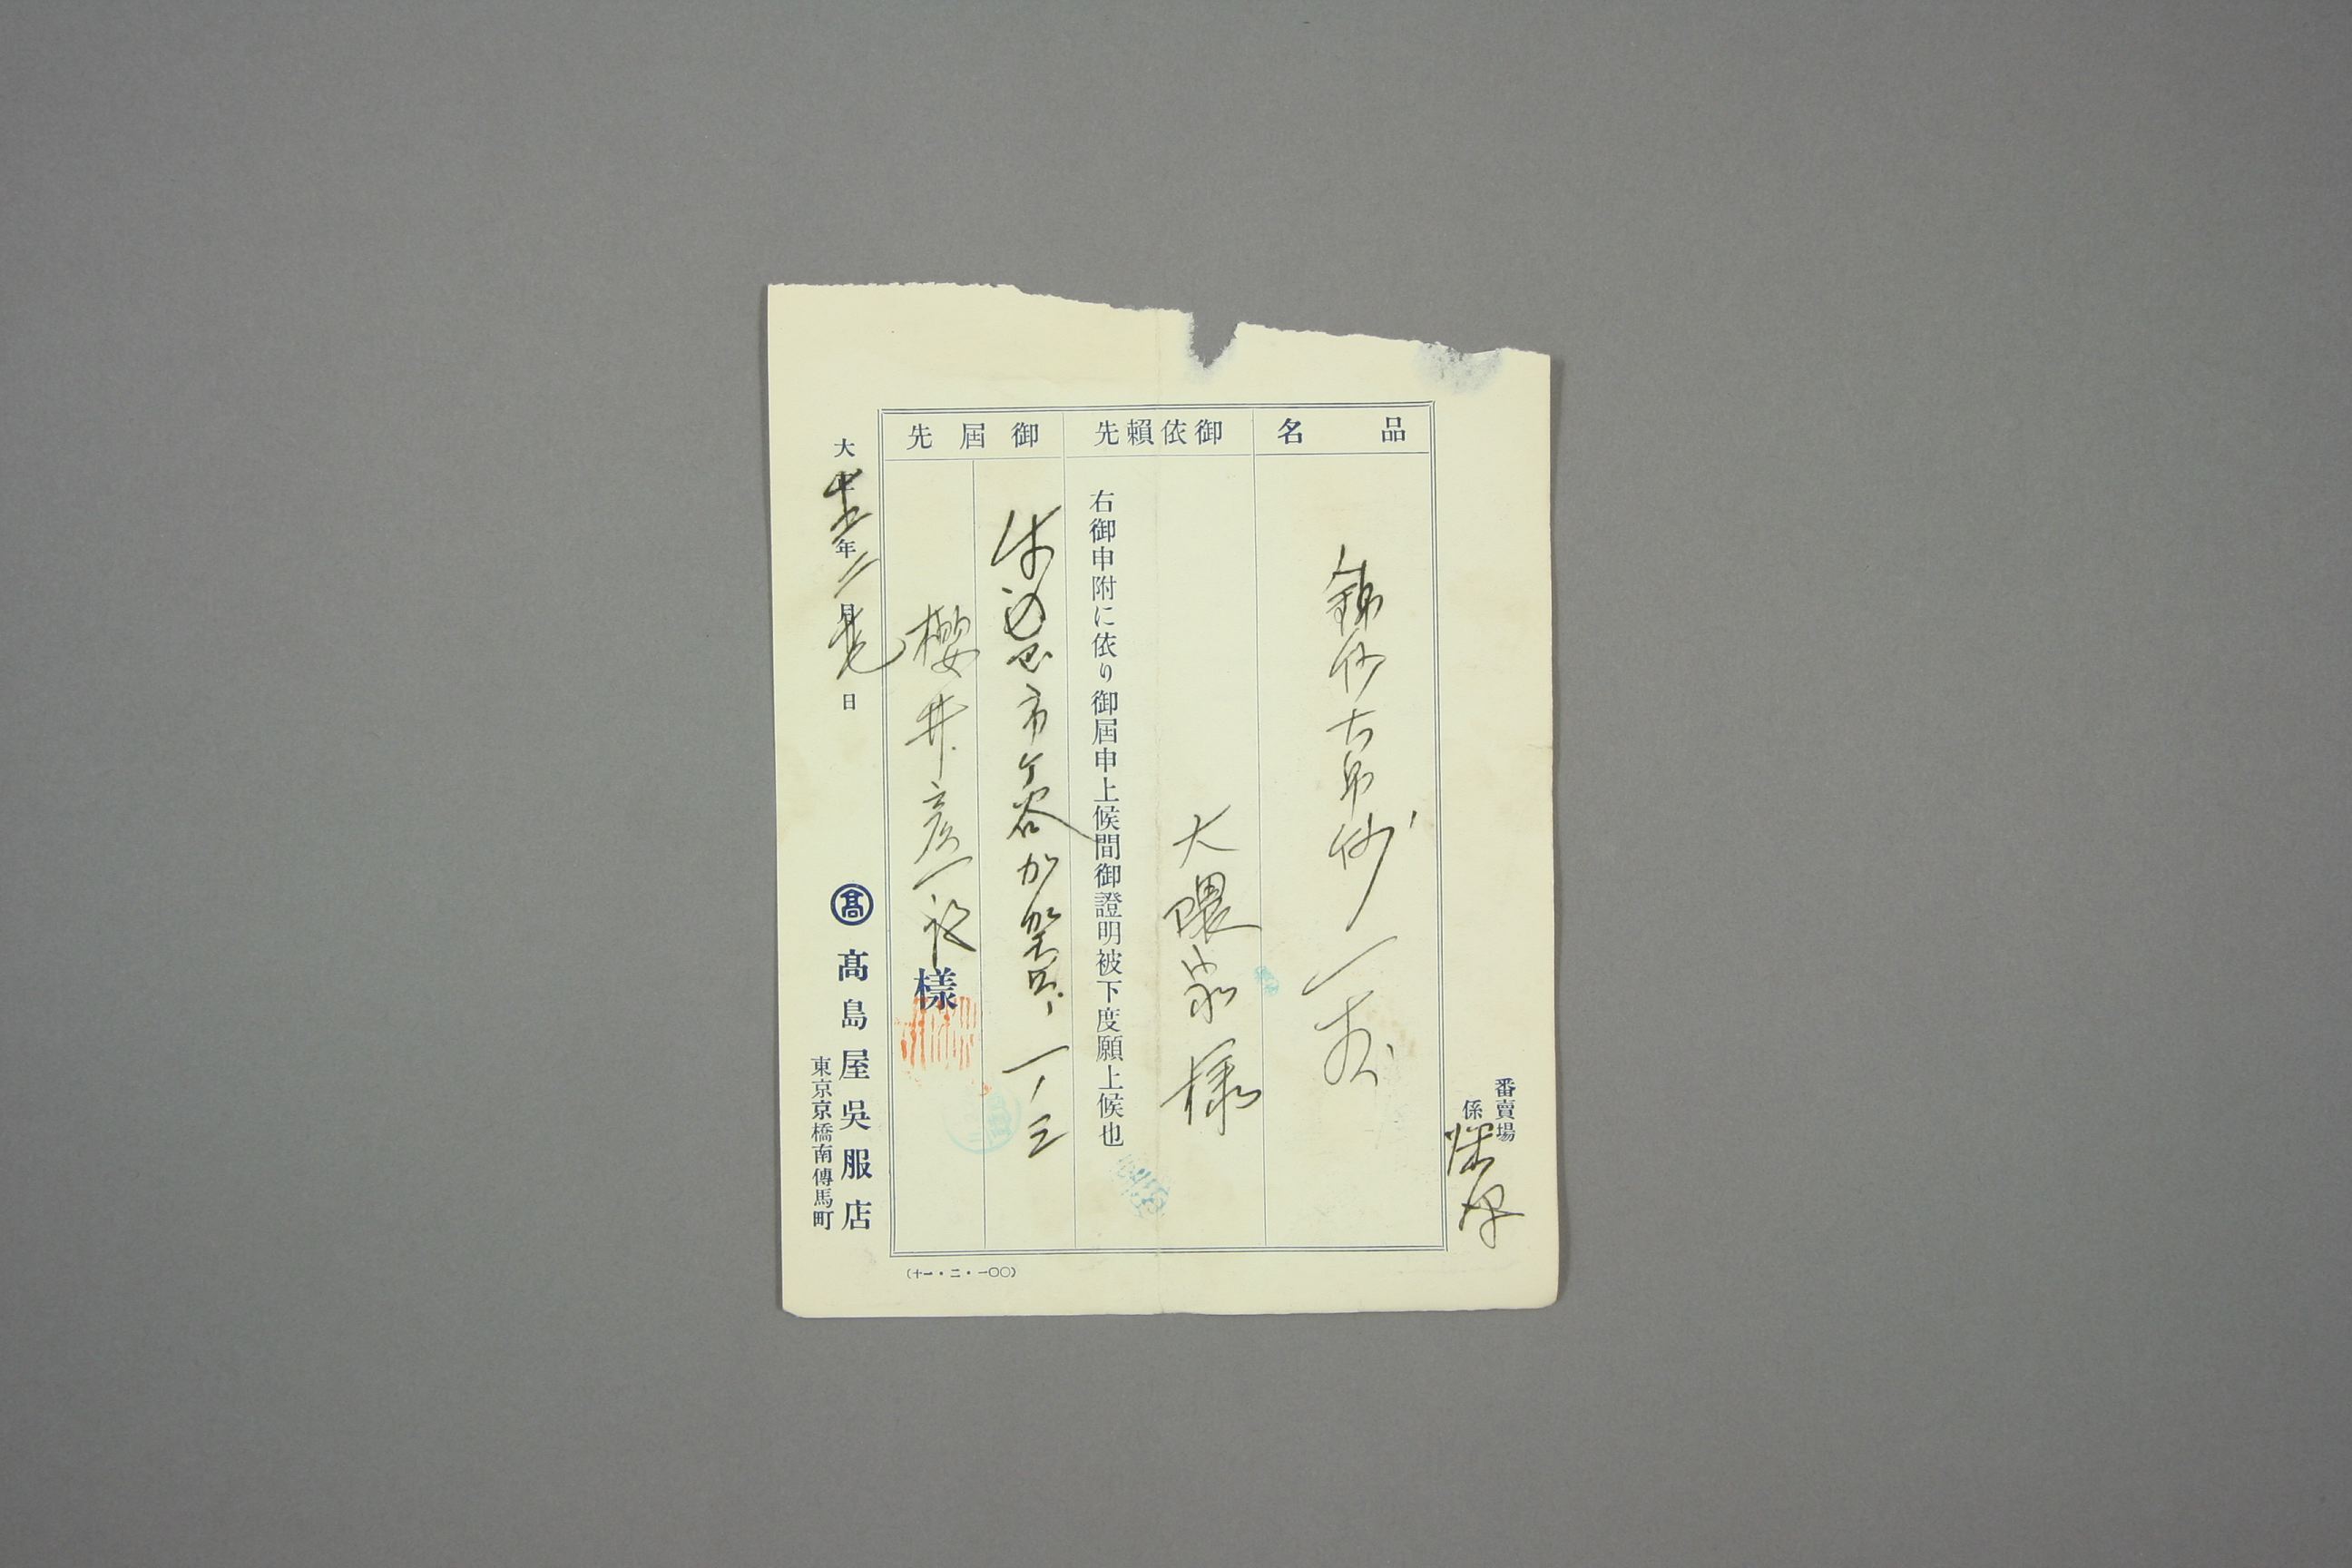 番賣場
係
品名
錦紗大帛紗 一枚
御依賴先
大隈家様
右御申附に依り御屆申上候間御證明被下度願上候也
御屆先
牛込区市ヶ谷加賀町一ノ三
櫻井彦一郎樣
大正十五年二月 日
髙 髙島屋吳服店
東京京橋南傳馬町
(十一・二・一〇〇)